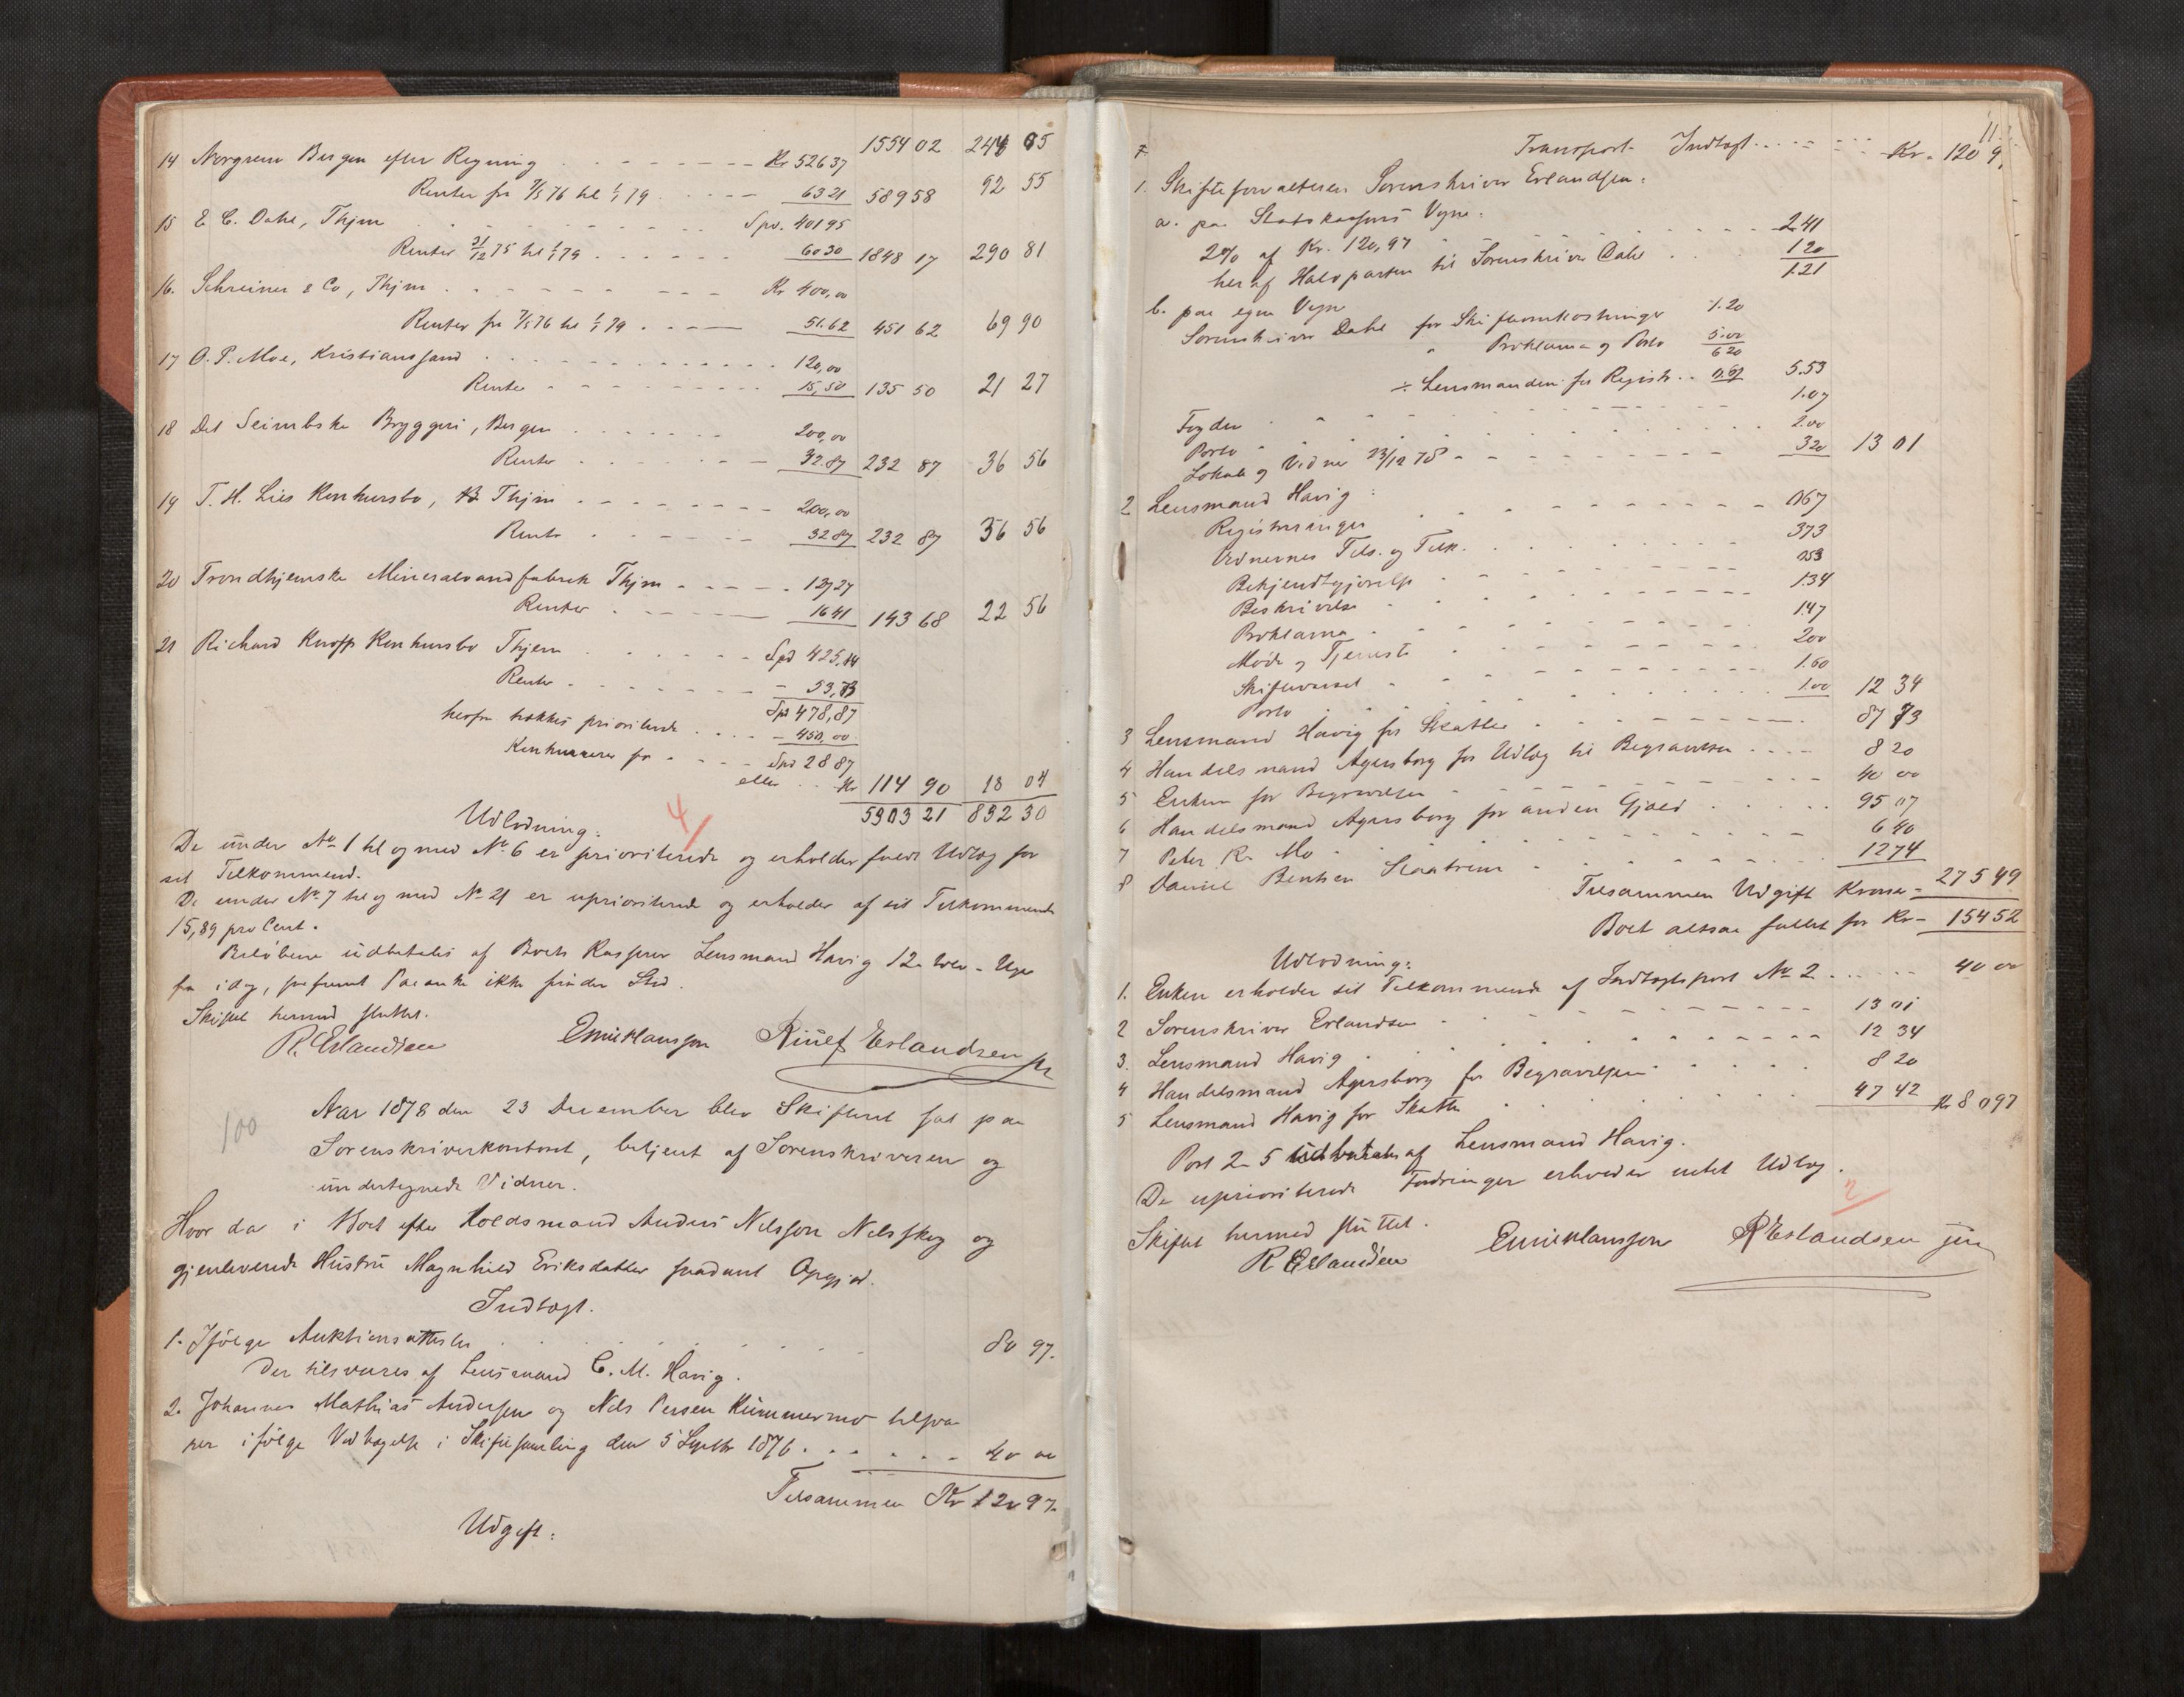 1554 02 244 65
14 Norgreen Bergen efter Regning Kr 526 37
Renter fra 7/5 76 til 1/1 79 63 21 589 58 92 55
15 E C. Dahl, Thjm Spd. 401 95
Renter 31/12 75 til 1/1 79 60 30 1848 17 290 81
16. Schreiner & Co, Thjm Kr 400,00
Renter fra 7/5 76 til 1/1 79 51.62 451 62 69 90
17 O. P. Moe, Kristianssand 120,00
Renter 15,50 135 50 21 27
18 Det Seimbske Bryggeri, Bergen 200,00
Renter 32.87 232 87 36 56
19 T. H. Lies Konkursbo, Thjm 200,00
Renter 32 87 232 87 36 56
20 Trondhjemske Mineralvandfabrik Thjm 127 27
Renter 16 41 143 68 22 56
21 Richard Knoff Konkursbo Thjem Spd 425,14
Renter 53,73
Spd 478,87
herfra trækkes prioriterede 450,00
Konkurrerer for Spd 28 87
eller Kr 114 90 18 04
5303 21 832 30
Udlodning: 4/
De under No 1 til og med No 6 er prioriterede og erholder fuldt Udlæg for
sit Tilkommend.
De under No 7 til og med No 21 er uprioriterede og erholder af sit Tilkommende
15,89 pro Cent.
Beløbene udbetales af Boets Kasserer Lensmand Havig 12 tolv Uger
fra idag, saafremt Paaanke ikke finder Sted.
Skiftet hermed sluttet.
R. Erlandsen Emil Klausson Rinef Erlandsen jr
100
Aar 1878 den 23 December blev Skifteret sat paa
Sorenskriverkontoret, betjent af Sorenskriveren og
undertegnede Vidner.
Hvor da i Boet efter Anders Nilsson Nilsskog og
gjenlevende Hustru Magnhild Eriksdatter saadant Opgjør.
Indtægt.
1. Ifølge Auktionsattester 80 97.
der tilsvares af Lensmand C. M. Havig.
2. Johannes Mathias Andersen og Nils Persen Kummermo tilsva-
rer ifølge Vedtagelse i Skiftesamling den 5 Septbr 1876 40 00
Tilsammen Kr 120 97.
Udgift:
11.
Transport Indtægt Kr. 120 9
1. Skifteforvalteren Sorenskriver Erlandsen:
a. paa Statskassens Vegne:
2% af Kr. 120,97 2.41
heraf Halvparten til Sorenskriver Dahl 1.20
1.21
b. paa egne Vegne
Sorenskriver Dahl for Skifteomkostninger 1.20
" Proklama og Porto 5.00
6 20
÷ Lensmanden for Registr. 0.67 5.53
Fogden 1.07
Porto 2.00
Lokale og Vidner 23/12 78 3 20 13 01
2 Lensmand Havig:
Registreringer 0.67
Vidnernes Tils. og Tilk. 3 73
Bekjendtgjørelse 0 53
Beskrivelse 1.34
Proklama 1.47
Møde og Tjeneste 2 00
Skiftevarsel 1.60
Porto 1.00 12 34
3 Lensmand Havig for Skatter 87 73
4 Handelsmand Agersborg for Udlæg til Begravelsen 8 20
5 Enken for Begravelsen 40 00
6 Handelsmand Agersborg for anden Gjæld 95 07
7 Peter K. Mo 6 40
8 Daniel Bentsen Slaatrem 12 74
Tilsammen Udgift Kroner 275 49
Boet altsaa fallit for Kr 154 52
Udlodning:
1. Enken erholder sit Tilkommende af Indtægtspost No 2 40 00
2 Sorenskriver Erlandsen 13 01
3. Lensmand Havig 12 34
4 Handelsmand Agersborg for Begravelsen 8 20
5 Lensmand Havig for Skatter 47 42 Kr 80 97
Post 2-5 udbetales af Lensmand Havig.
De uprioriterede Fordringer erholder intet Udlæg.
2/
Skiftet hermed sluttet.
R Erlandsen Emil Klausson R Erlandsen jun